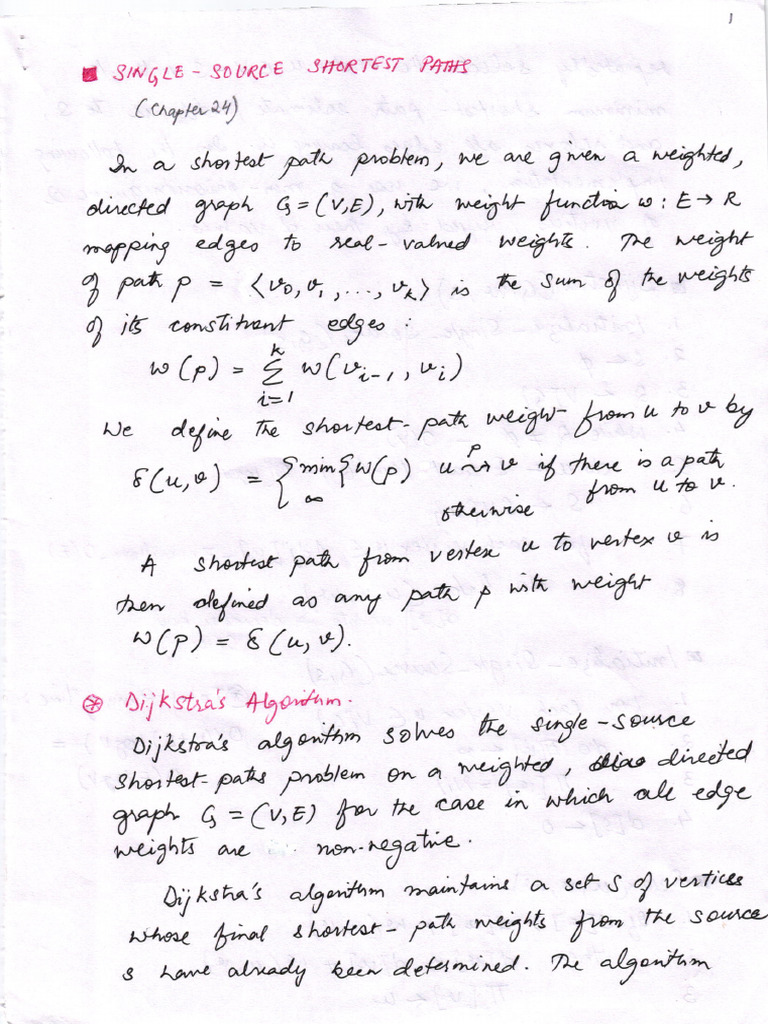 1
SINGLE-SOURCE SHORTEST PATHS
(Chapter 24)
In a shortest path problem, we are given a weighted,
directed graph G = (V,E), with weight function w : E → R
mapping edges to real-valued weights. The weight
of path p = ⟨v0, v1, ..., vk⟩ is the sum of the weights
of its constituent edges :
w(p) = Σ_{i=1}^{k} w(v_{i-1}, v_i)
We define the shortest-path weight from u to v by
δ(u,v) = { min { w(p) u ⤳^p v if there is a path
from u to v.
∞ otherwise
A shortest path from vertex u to vertex v is
then defined as any path p with weight
w(p) = δ(u, v).
Dijkstra's Algorithm.
Dijkstra's algorithm solves the single-source
shortest-paths problem on a weighted, directed
graph G = (V,E) for the case in which all edge
weights are non-negative.
Dijkstra's algorithm maintains a set S of vertices
whose final shortest-path weights from the source
s have already been determined. The algorithm